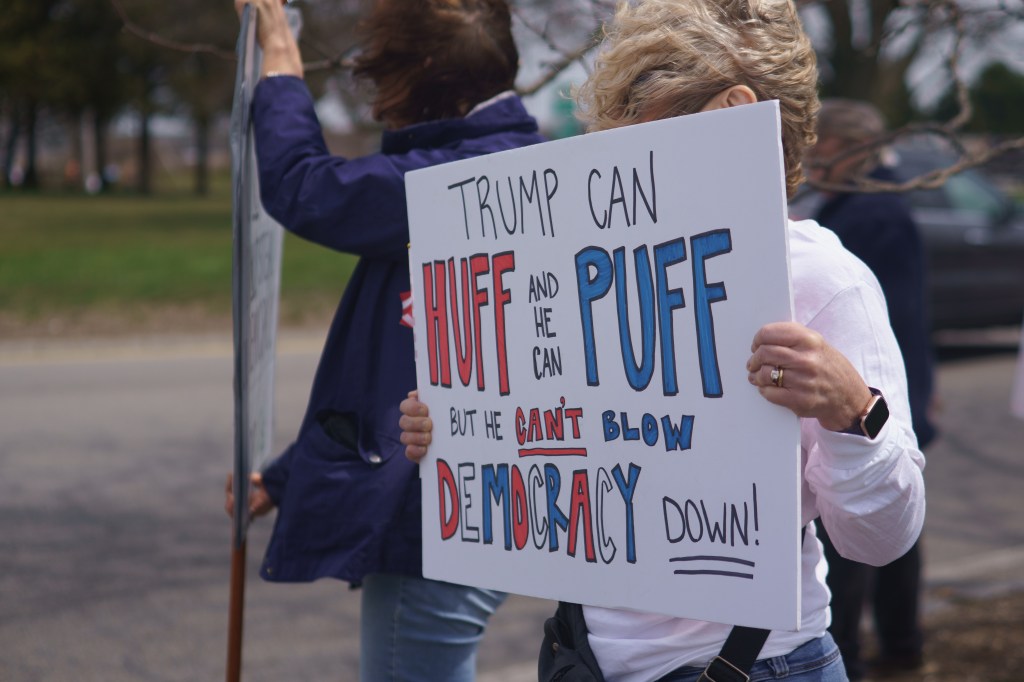 TRUMP CAN
HUFF AND HE CAN PUFF
BUT HE CAN'T BLOW
DEMOCRACY DOWN!